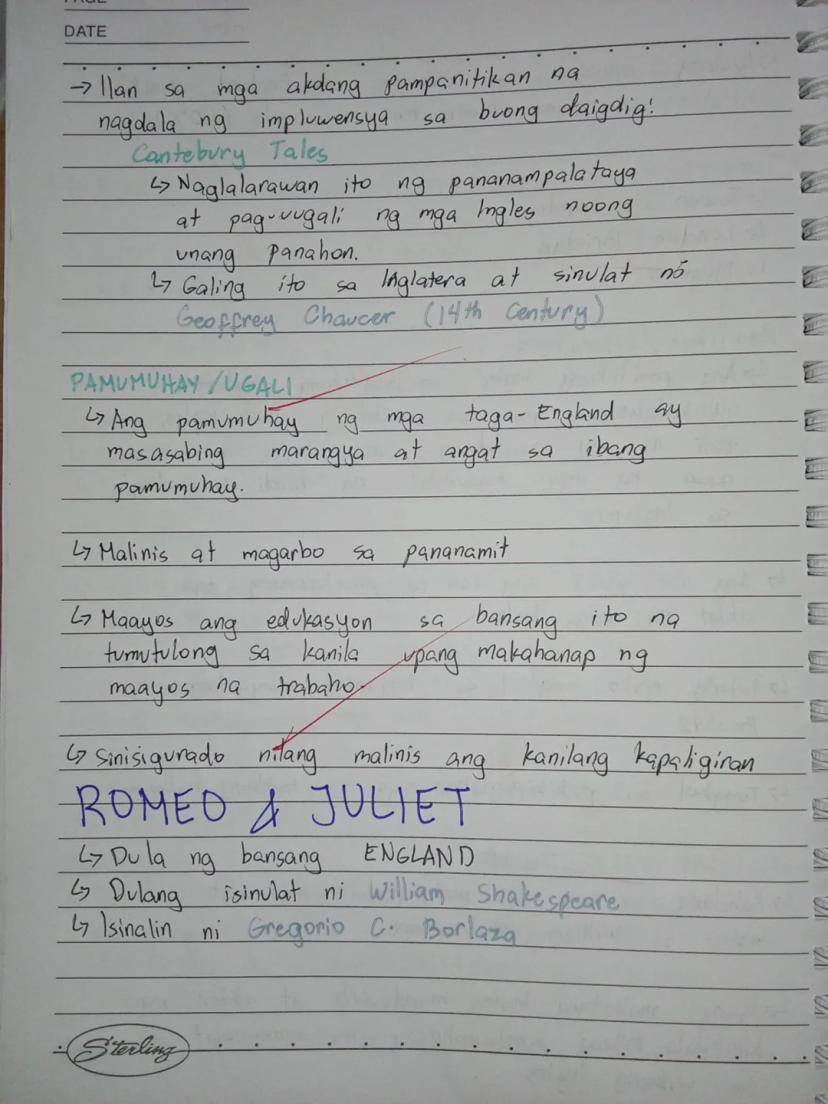 DATE
→ Ilan sa mga akdang pampanitikan na
nagdala ng impluwensya sa buong daigdig:
Cantebury Tales
↳ Naglalarawan ito ng pananampalataya
at pag-uugali ng mga Ingles noong
unang panahon.
↳ Galing ito sa Inglatera at sinulat ni
Geoffrey Chaucer (14th Century)
PAMUMUHAY/UGALI
↳ Ang pamumuhay ng mga taga-England ay
masasabing marangya at angat sa ibang
pamumuhay.
↳ Malinis at magarbo sa pananamit
↳ Maayos ang edukasyon sa bansang ito na
tumutulong sa kanila upang makahanap ng
maayos na trabaho.
↳ Sinisigurado nilang malinis ang kanilang kapaligiran
ROMEO & JULIET
↳ Dula ng bansang ENGLAND
↳ Dulang isinulat ni William Shakespeare
↳ Isinalin ni Gregorio C. Borlaza
Sterling